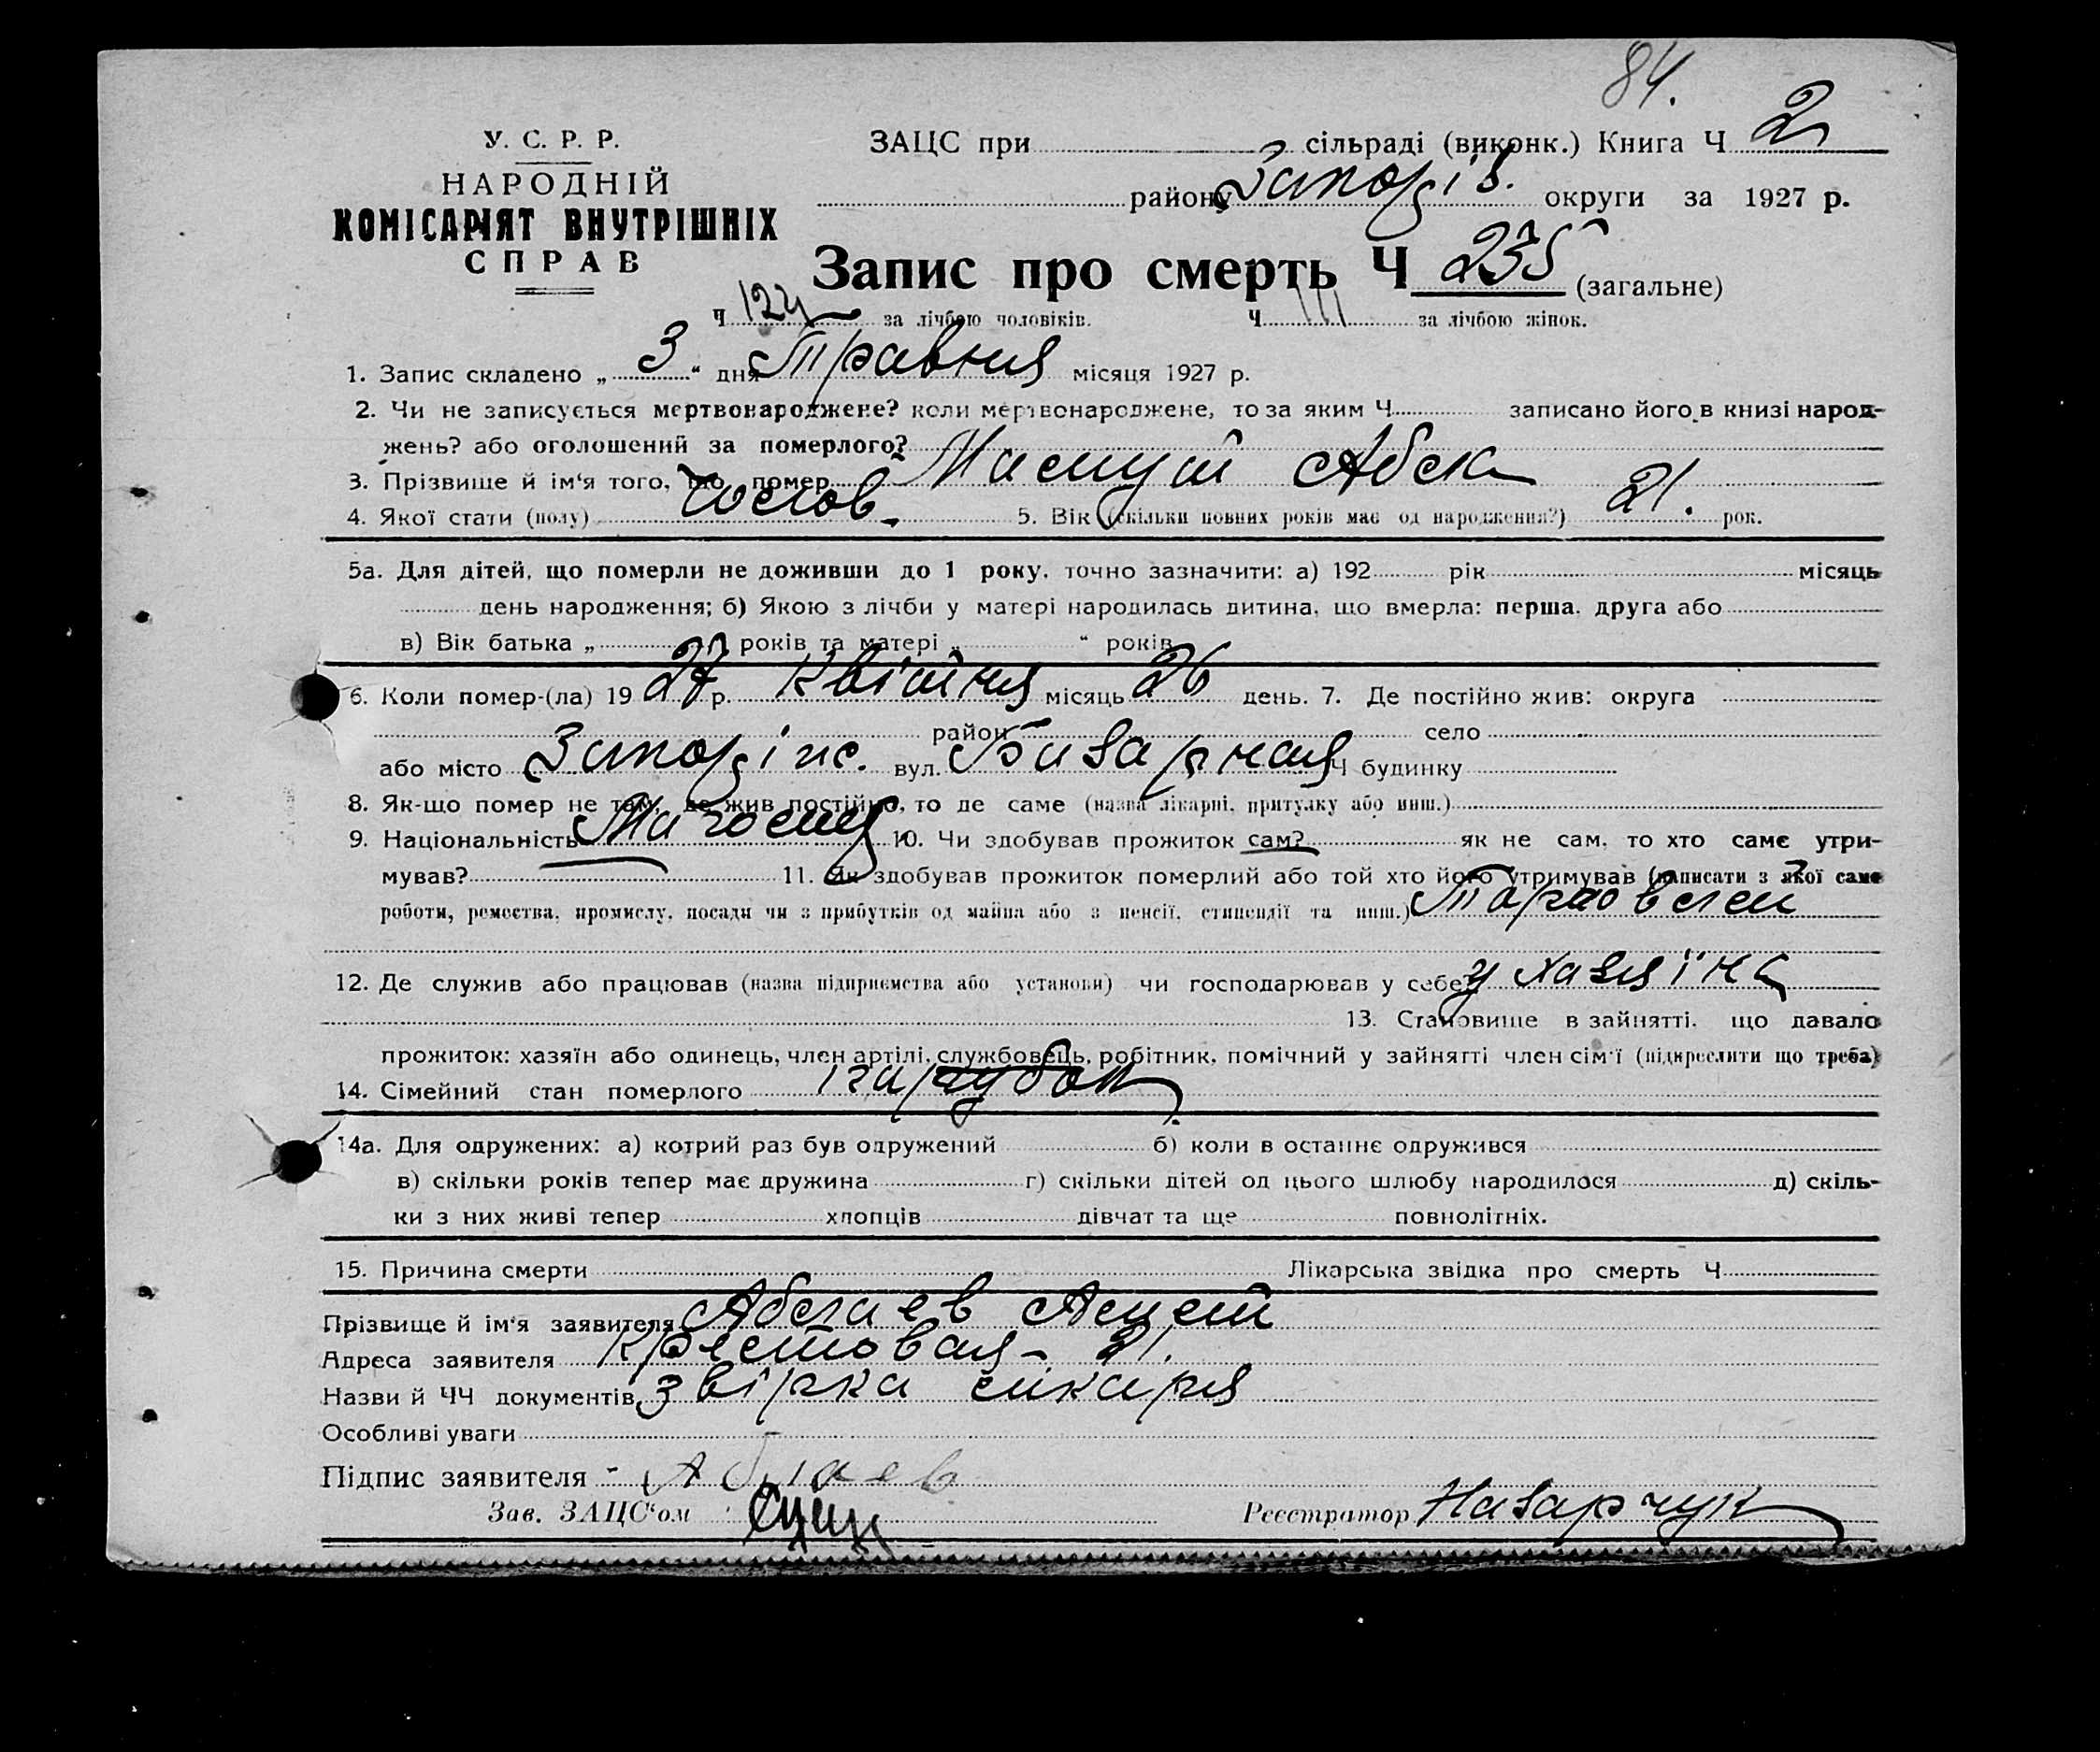 84.
У. С. Р. Р.
НАРОДНІЙ
КОМІСАРІЯТ ВНУТРІШНІХ
СПРАВ
ЗАЦС при сільраді (виконк.) Книга Ч 2
району Запоріз. округи за 1927 р.
Запис про смерть Ч 235 (загальне)
Ч 124 за лічбою чоловіків. Ч 111 за лічбою жінок.
1. Запис складено „ 3 “ дня Травня місяця 1927 р.
2. Чи не записується мертвонароджене? коли мертвонароджене, то за яким Ч записано його в книзі народ-
жень? або оголошений за померлого?
3. Прізвище й ім'я того, що помер
4. Якої стати (полу) чолов. 5. Вік (скільки повних років має од народження?) 21. рок.
5а. Для дітей, що померли не доживши до 1 року, точно зазначити: а) 192 рік місяць
день народження; б) Якою з лічби у матері народилась дитина, що вмерла: перша, друга або
в) Вік батька „ “ років та матері „ “ років
6. Коли помер-(ла) 19 27 р. Квітня місяць 26 день. 7. Де постійно жив: округа
район село
або місто Запоріж. вул. Базарная Ч будинку
8. Як-що помер не там, де жив постійно, то де саме (назва лікарні, притулку або инш.)
9. Національність 10. Чи здобував прожиток сам? як не сам, то хто саме утри-
мував? 11. Як здобував прожиток померлий або той хто його утримував (написати з якої саме
роботи, ремества, промислу, посади чи з прибутків од майна або з пенсії, стипендії та инш.) Торговлею
12. Де служив або працював (назва підприємства або установи) чи господарював у себе? у хазяїна
13. Становище в зайнятті, що давало
прожиток: хазяїн або одинець, член артілі, службовець, робітник, помічний у зайнятті член сім'ї (підкреслити що треба)
14. Сімейний стан померлого парубок
14а. Для одружених: а) котрий раз був одружений б) коли в останнє одружився
в) скільки років тепер має дружина г) скільки дітей од цього шлюбу народилося д) скіль-
ки з них живі тепер хлопців дівчат та ще повнолітніх.
15. Причина смерти Лікарська звідка про смерть Ч
Прізвище й ім'я заявителя Аблаев
Адреса заявителя Крестовая - 21.
Назви й ЧЧ документів звірка лікаря
Особливі уваги
Підпис заявителя - Аблаев
Зав. ЗАЦС'ом Реєстратор Назарчук